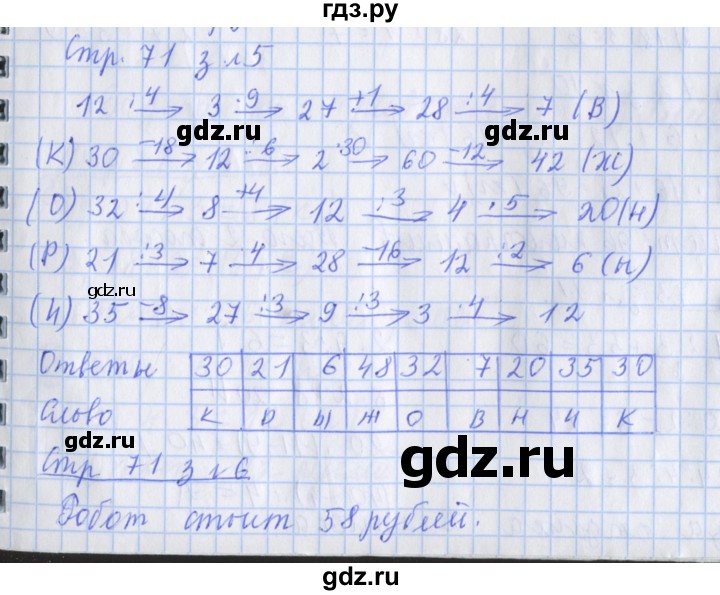 гдз.ру
Стр. 71 з №5
12 :4→ 3 ·9→ 27 +1→ 28 :4→ 7 (В)
gdz.ru gdz.ru
(К) 30 -18→ 12 :6→ 2 ·30→ 60 -12→ 42 (Ж)
(О) 32 :4→ 8 +4→ 12 :3→ 4 ·5→ 20 (Н)
(Р) 21 :3→ 7 ·4→ 28 -16→ 12 :2→ 6 (Ы)
gdz.ru gdz.ru
(И) 35 -8→ 27 :3→ 9 :3→ 3 ·4→ 12
Ответы 30 21 6 48 32 7 20 35 30
Слово К Р Ы Ж О В Н И К
Стр 71 з №6
gdz.ru
Робот стоит 58 рублей.
gdz.ru
gdz.ru